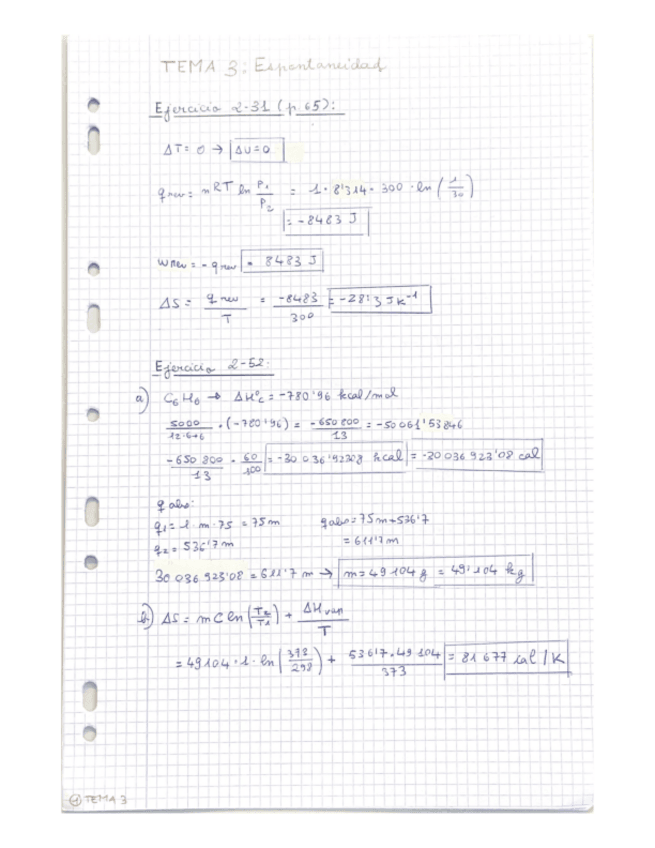 TEMA 3: Espontaneidad
Ejercicio 2-31 (p 65):
ΔT = 0 → ΔU=0
q rev = nRT ln P1/P2 = 1 · 8'314 · 300 · ln (1/30)
= -8483 J
w rev = - q rev = 8483 J
ΔS = q rev/T = -8483/300 = -28'3 JK⁻¹
Ejercicio 2-52:
a) C6H6 → ΔH°c = -780'96 kcal/mol
5000/12·6+6 · (-780'96) = -650 800/13 = -50061'53846
-650 800/13 · 60/100 = -30 036'92308 kcal = -30 036 923'08 cal
q abs:
q1 = 1 · m · 75 = 75m q abs = 75m + 536'7
q2 = 536'7 m = 611'7 m
30 036 923'08 = 611'7 m → m = 49 104 g = 49'104 kg
b) ΔS = mC ln (T2/T1) + ΔH vap/T
= 49104 · 1 · ln (373/298) + 536'7 · 49 104/373 = 81 677 cal/K
1 TEMA 3